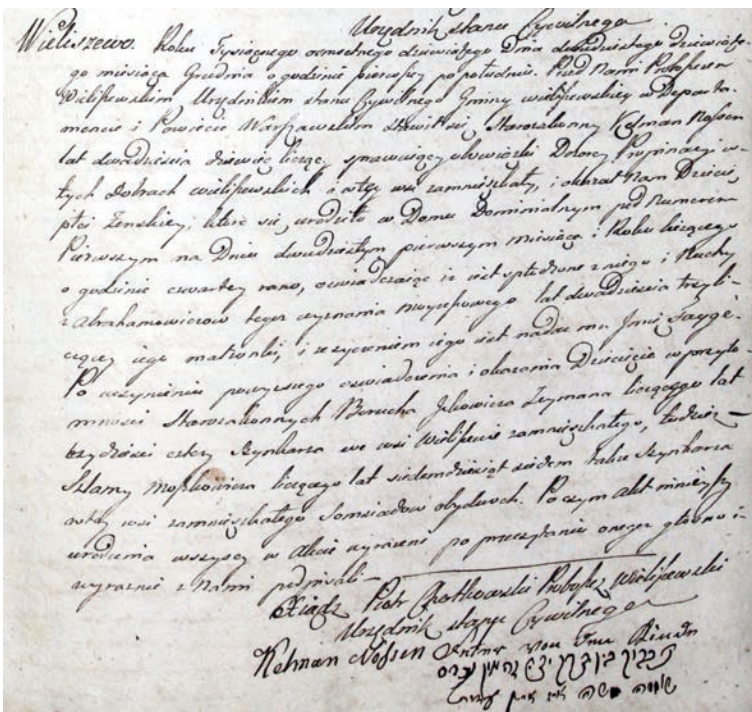 Urzędnik stanu Cywilnego
Wieliszewo. Roku Tysiącznego osmsetnego dziewiątego Dnia dwudziestego dziewiąte-
go miesiąca Grudnia o godzinie pierwszey po południu. Przed Nami Proboszczem
Wieliszewskim Urzędnikiem stanu Cywilnego Gminy wieliszewskiey w Departa-
mencie i Powiecie Warszawskim stawił się Starozakonny Kelman Nossen
lat dwadzieścia dziewięć liczący sprawuiący obowiązki Dozorcy Propinacyi w
tych dobrach wieliszewskich i w tey wsi zamieszkały, i okazał Nam Dziecię
płci żenskiey, które się urodziło w Domu Dominialnym pod Numerem
Pierwszym na Dniu dwudziestym pierwszym miesiąca i Roku bieżącego
o godzinie czwartey rano, oswiadczaiąc iż iest spłodzone z niego i Ruchy
z Abrahamowiczow tegoż wyznania moyżeszowego lat dwadzieścia trzy li-
czącey iego małżonki, i że życzeniem iego iest nadać mu Jmię Saygę
Po uczynieniu powyższego oswiadczenia i okazania Dziecięcia w przyto-
mności Starozakonnych Berucha Jckowicza Zeymana liczącego lat
trzydzieści cztery Szynkarza we wsi Wieliszewie zamieszkałego, tudzież
Szlamy Moszkowicza liczącego lat siedemdziesiąt siedem także Szynkarza
w tey wsi zamieszkałego Sąmsiadow obydwoch. Po czym akt ninieyszy
urodzenia wszyscy w Akcie wyrażeni po przeczytaniu onegoż głośno i
wyraznie z Nami podpisali
Xiądz Piotr Proboszcz Wieliszewski
Urzędnik stanu Cywilnego
Kelman Nossen von